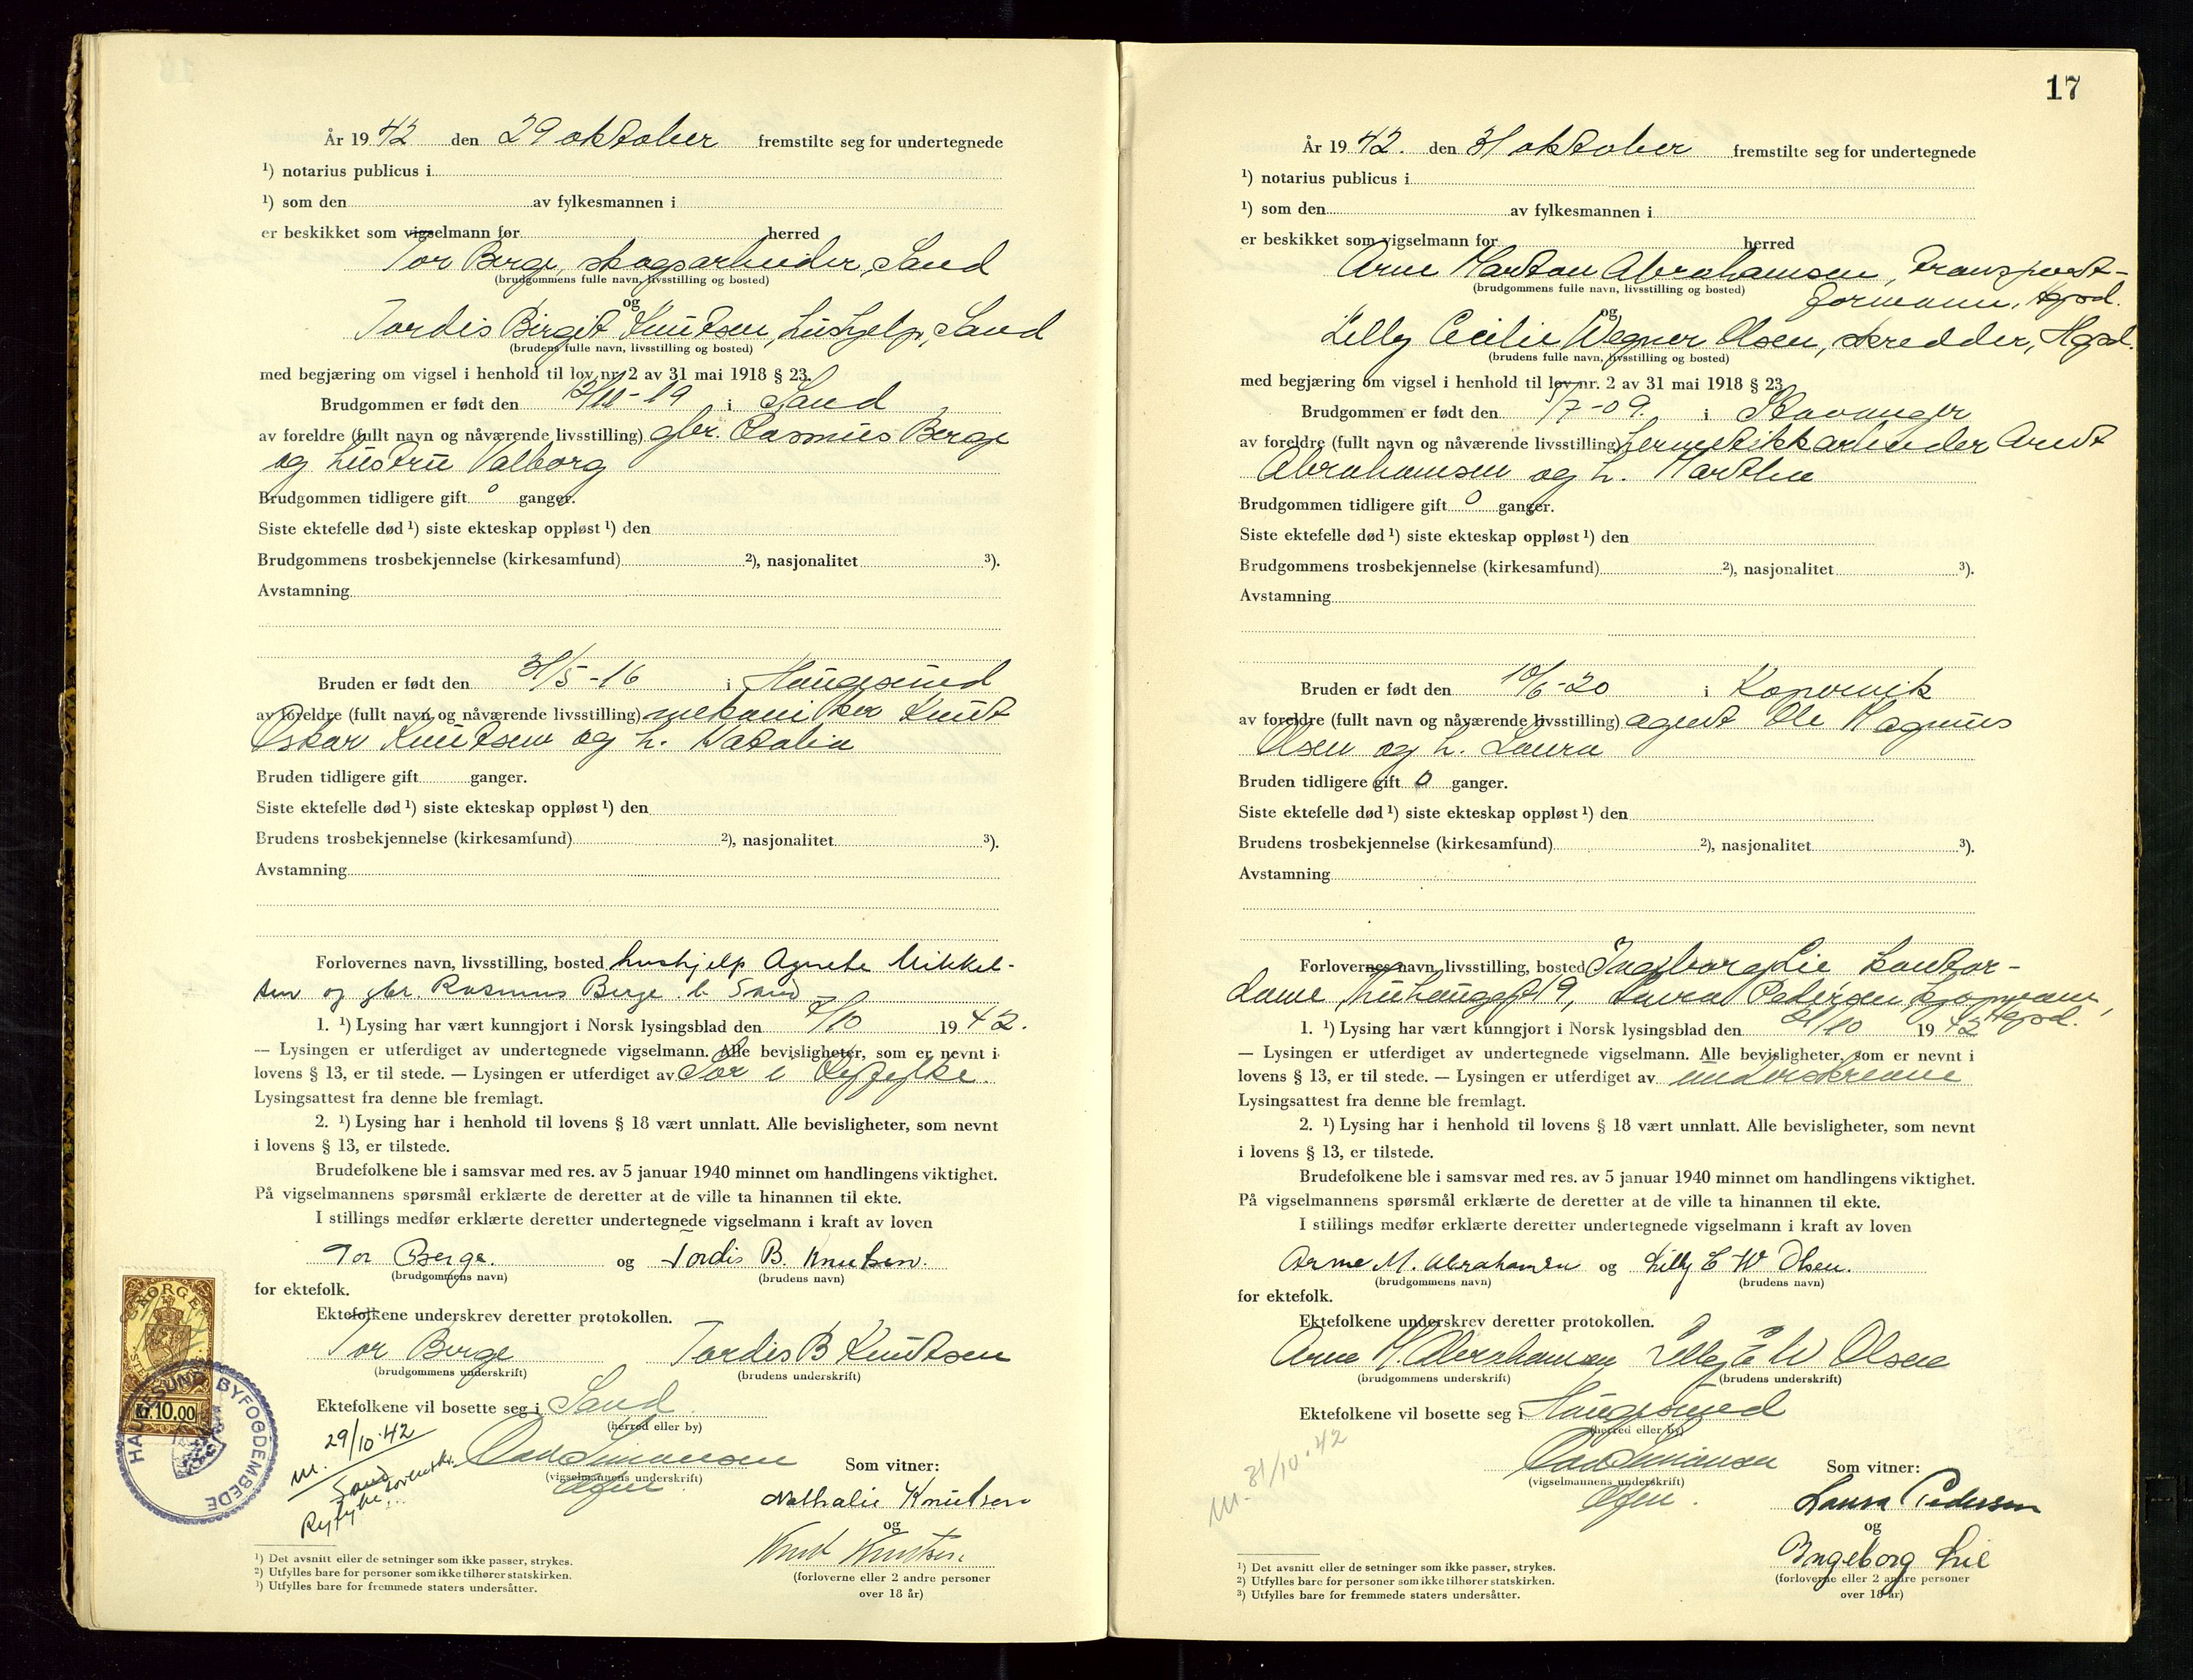 År 1942 den 29 oktober fremstilte seg for undertegnede
¹) notarius publicus i
¹) som den av fylkesmannen i
er beskikket som vigselmann for herred
Tor Berge, skogsarbeider, Sand
(brudgommens fulle navn, livsstilling og bosted)
og
Tordis Birgit Knutsen, hushjelp, Sand
(brudens fulle navn, livsstilling og bosted)
med begjæring om vigsel i henhold til lov nr. 2 av 31 mai 1918 § 23.
Brudgommen er født den -19 i Sand
av foreldre (fullt navn og nåværende livsstilling) gbr. Rasmus Berge
og hustru Valborg
Brudgommen tidligere gift 0 ganger.
Siste ektefelle død ¹) siste ekteskap oppløst ¹) den
Brudgommens trosbekjennelse (kirkesamfund) ²), nasjonalitet ³).
Avstamning
Bruden er født den 31/5-16 i Haugesund
av foreldre (fullt navn og nåværende livsstilling) mekaniker Knut
Oskar Knutsen og h. Natalia
Bruden tidligere gift ganger.
Siste ektefelle død ¹) siste ekteskap oppløst ¹) den
Brudens trosbekjennelse (kirkesamfund) ²), nasjonalitet ³).
Avstamning
Forlovernes navn, livsstilling, bosted hushjelp Agnete Mikkel-
sen og gbr. Rasmus Berge. b. Sand
1. ¹) Lysing har vært kunngjort i Norsk lysingsblad den /10 1942.
— Lysingen er utferdiget av undertegnede vigselmann. Alle bevisligheter, som er nevnt i
lovens § 13, er til stede. — Lysingen er utferdiget av Sor. i Ryfylke.
Lysingsattest fra denne ble fremlagt.
2. ¹) Lysing har i henhold til lovens § 18 vært unnlatt. Alle bevisligheter, som nevnt
i lovens § 13, er tilstede.
Brudefolkene ble i samsvar med res. av 5 januar 1940 minnet om handlingens viktighet.
På vigselmannens spørsmål erklærte de deretter at de ville ta hinannen til ekte.
I stillings medfør erklærte deretter undertegnede vigselmann i kraft av loven
Tor Berge. og Tordis B. Knutsen.
(brudgommens navn) (brudens navn)
for ektefolk.
Ektefolkene underskrev deretter protokollen.
Tor Berge Tordis B Knutsen
(brudgommens underskrift) (brudens underskrift)
Ektefolkene vil bosette seg i Sand
(herred eller by)
NORGE
Kr. 10.00
HAUGESUND BYFOGDEMBEDE
m. 29/10-42
Sand
Ryfylke sorenskr.
(vigselmannens underskrift)
Som vitner:
Nathalie Knutsen
og
Knut Knutsen
(forloverne eller 2 andre personer
over 18 år)
¹) Det avsnitt eller de setninger som ikke passer, strykes.
²) Utfylles bare for personer som ikke tilhører statskirken.
³) Utfylles bare for fremmede staters undersåtter.
17
År 1942. den 31 oktober fremstilte seg for undertegnede
¹) notarius publicus i
¹) som den av fylkesmannen i
er beskikket som vigselmann for herred
Arne Marton Abrahamsen, transport-
formann, Hgsd.
(brudgommens fulle navn, livsstilling og bosted)
og
Lilly Cecilie Wegner Olsen, skredder, Hgsd.
(brudens fulle navn, livsstilling og bosted)
med begjæring om vigsel i henhold til lov nr. 2 av 31 mai 1918 § 23
Brudgommen er født den /7-09. i Stavanger
av foreldre (fullt navn og nåværende livsstilling) hermetikkarbeider Arnt
Abrahamsen og h. Marthe
Brudgommen tidligere gift 0 ganger.
Siste ektefelle død ¹) siste ekteskap oppløst ¹) den
Brudgommens trosbekjennelse (kirkesamfund) ²), nasjonalitet ³).
Avstamning
Bruden er født den 10/6-20 i Kopervik
av foreldre (fullt navn og nåværende livsstilling) agent Ole Magnus
Olsen og h. Laura
Bruden tidligere gift 0 ganger.
Siste ektefelle død ¹) siste ekteskap oppløst ¹) den
Brudens trosbekjennelse (kirkesamfund) ²), nasjonalitet ³).
Avstamning
Forlovernes navn, livsstilling, bosted Ingeborg Lie kontor-
dame, 19, Laura Pedersen,
Hgsd.
1. ¹) Lysing har vært kunngjort i Norsk lysingsblad den 21/10 1942
— Lysingen er utferdiget av undertegnede vigselmann. Alle bevisligheter, som er nevnt i
lovens § 13, er til stede. — Lysingen er utferdiget av underskrevne
Lysingsattest fra denne ble fremlagt.
2. ¹) Lysing har i henhold til lovens § 18 vært unnlatt. Alle bevisligheter, som nevnt
i lovens § 13, er tilstede.
Brudefolkene ble i samsvar med res. av 5 januar 1940 minnet om handlingens viktighet.
På vigselmannens spørsmål erklærte de deretter at de ville ta hinannen til ekte.
I stillings medfør erklærte deretter undertegnede vigselmann i kraft av loven
Arne M. Abrahamsen og Lilly C W Olsen.
(brudgommens navn) (brudens navn)
for ektefolk.
Ektefolkene underskrev deretter protokollen.
Arne M. Abrahamsen Lilly C W Olsen
(brudgommens underskrift) (brudens underskrift)
Ektefolkene vil bosette seg i Haugesund
(herred eller by)
m. 31/10-42
(vigselmannens underskrift)
Som vitner:
Laura Pedersen
og
Ingeborg Lie
(forloverne eller 2 andre personer
over 18 år)
¹) Det avsnitt eller de setninger som ikke passer, strykes.
²) Utfylles bare for personer som ikke tilhører statskirken.
³) Utfylles bare for fremmede staters undersåtter.